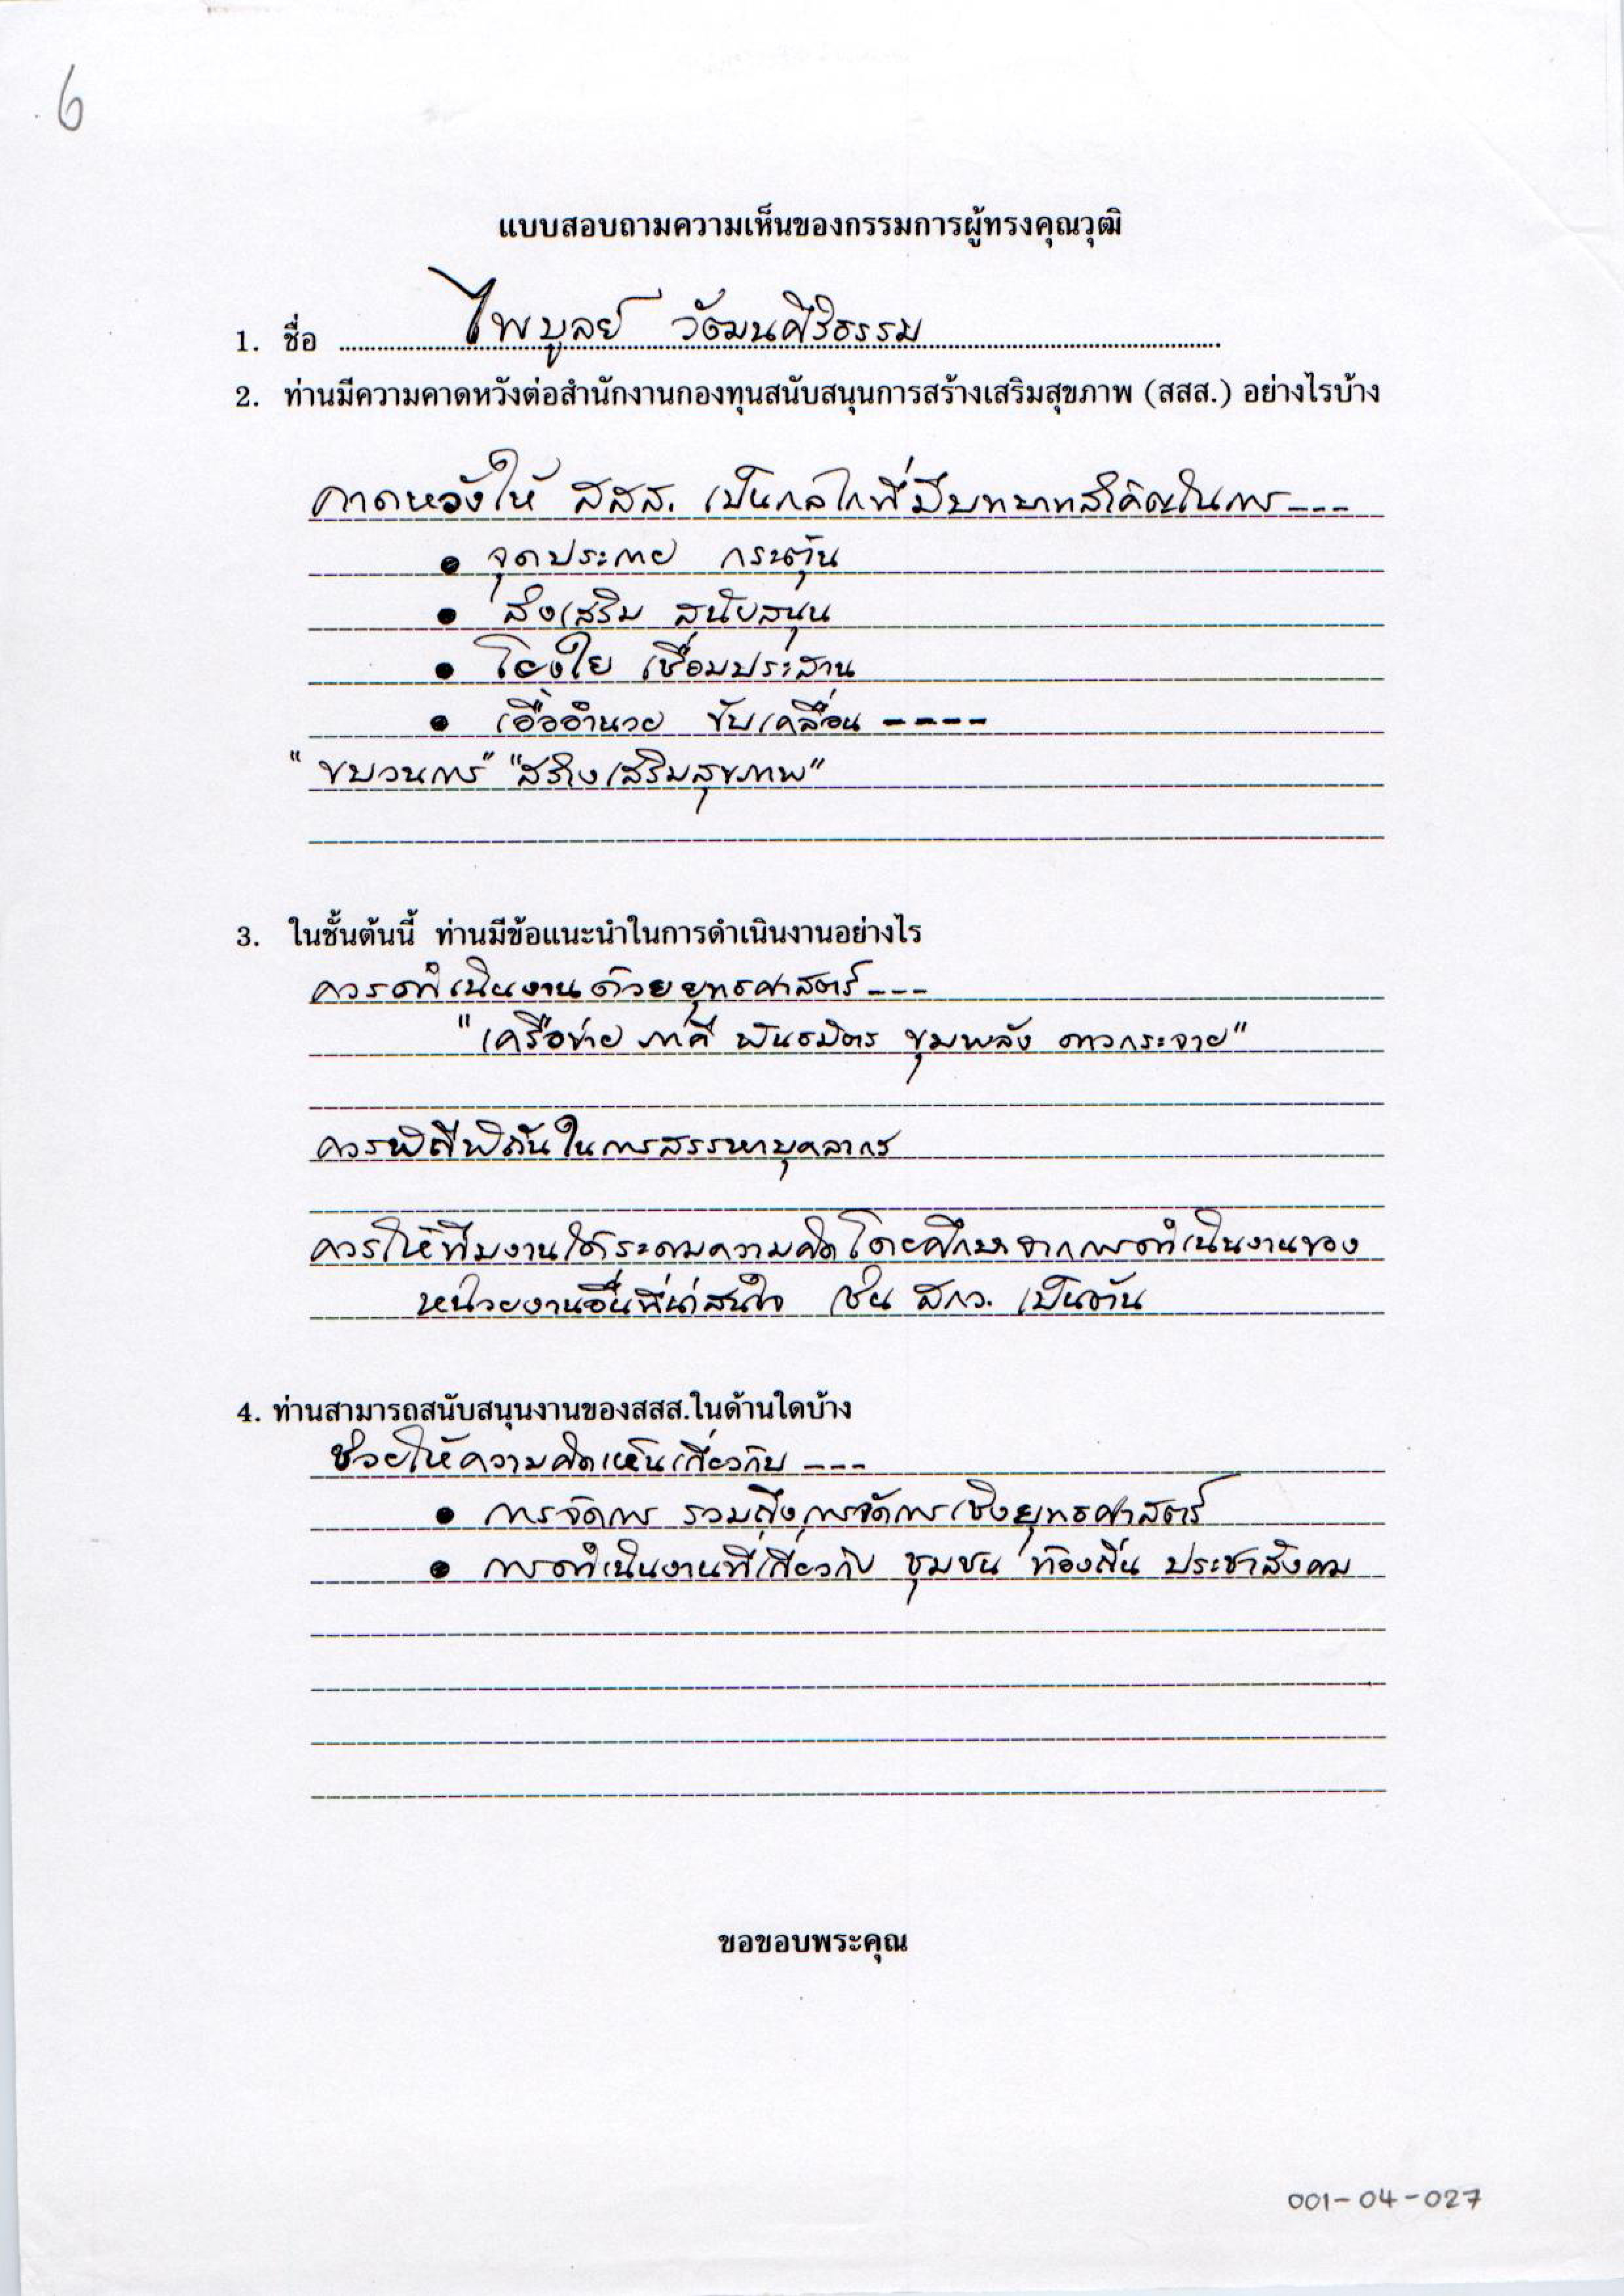 6
แบบสอบถามความเห็นของกรรมการผู้ทรงคุณวุฒิ
1. ชื่อ ไพบูลย์ วัฒนศิริธรรม
2. ท่านมีความคาดหวังต่อสำนักงานกองทุนสนับสนุนการสร้างเสริมสุขภาพ (สสส.) อย่างไรบ้าง
คาดหวังให้ สสส. เป็นกลไกที่มีบทบาทสำคัญในการ ---
• จุดประกาย กระตุ้น
• ส่งเสริม สนับสนุน
• โยงใย เชื่อมประสาน
• เอื้ออำนวย ขับเคลื่อน ----
"ขบวนการ" "สร้างเสริมสุขภาพ"
3. ในชั้นต้นนี้ ท่านมีข้อแนะนำในการดำเนินงานอย่างไร
ควรดำเนินงานด้วยยุทธศาสตร์ ---
"เครือข่าย ภาคี พันธมิตร ขุมพลัง ดาวกระจาย"
ควรพิถีพิถันในการสรรหาบุคลากร
ควรให้ทีมงานได้ระดมความคิดโดยศึกษาจากการดำเนินงานของ
หน่วยงานอื่นที่น่าสนใจ เช่น สกว. เป็นต้น
4. ท่านสามารถสนับสนุนงานของสสส.ในด้านใดบ้าง
ช่วยให้ความคิดเห็นเกี่ยวกับ ---
• การจัดการ รวมถึงการจัดการเชิงยุทธศาสตร์
• การดำเนินงานที่เกี่ยวกับ ชุมชน ท้องถิ่น ประชาสังคม
ขอขอบพระคุณ
001-04-027